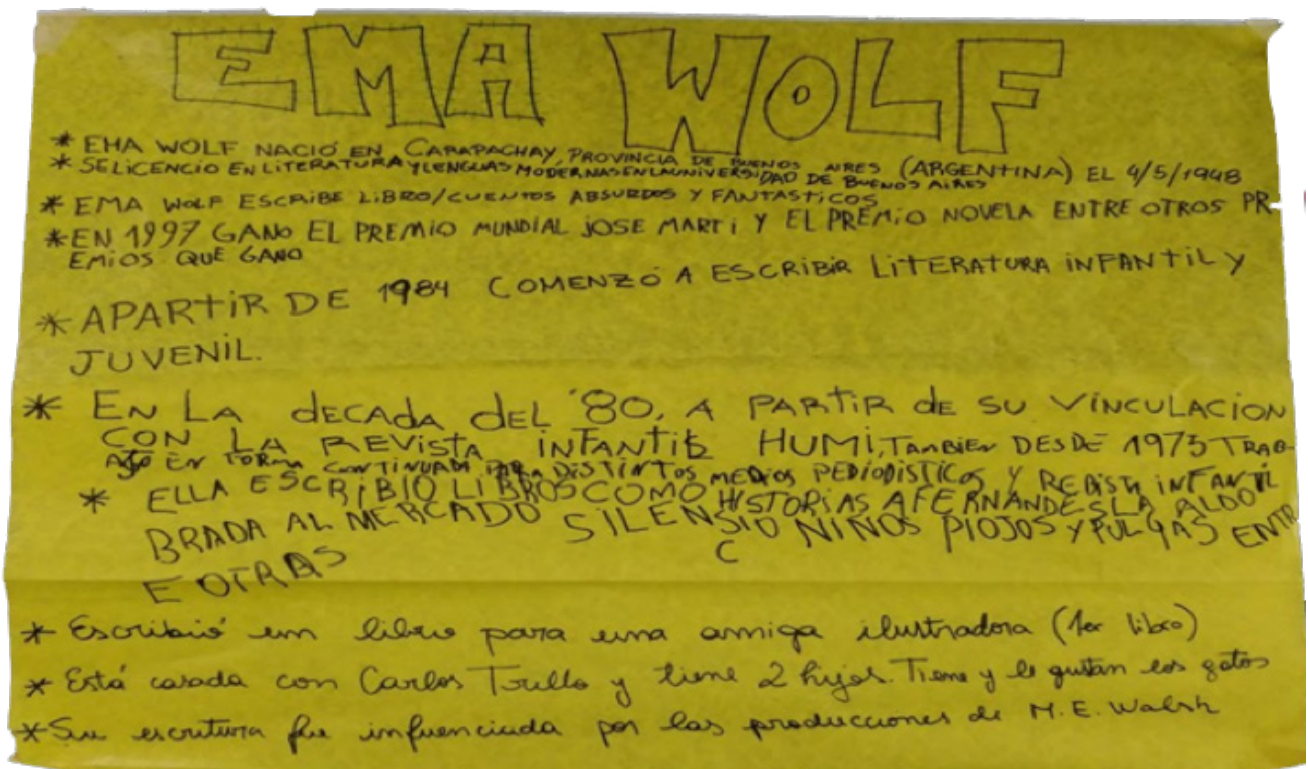 EMA WOLF
* EMA WOLF NACIÓ EN CARAPACHAY, PROVINCIA DE BUENOS AIRES (ARGENTINA) EL 4/5/1948
* SE LICENCIO EN LITERATURA Y LENGUAS MODERNAS EN LA UNIVERSIDAD DE BUENOS AIRES
* EMA WOLF ESCRIBE LIBRO/CUENTOS ABSURDOS Y FANTASTICOS
* EN 1997 GANO EL PREMIO MUNDIAL JOSE MARTI Y EL PREMIO NOVELA ENTRE OTROS PR-
EMIOS QUE GANO
* APARTIR DE 1984 COMENZÓ A ESCRIBIR LITERATURA INFANTIL Y
JUVENIL.
* EN LA DECADA DEL '80, A PARTIR DE SU VINCULACION
CON LA REVISTA INFANTIL HUMI, TAMBIEN DESDE 1975 TRAB-
AJO EN FORMA CONTINUADA PARA DISTINTOS MEDIOS PERIODISTICOS Y REBISTA INFANTIL
* ELLA ESCRIBIO LIBROS COMO HISTORIAS A FERNANDES LA ALDO
BRADA AL MERCADO SILENSIO NIÑOS PIOJOS Y PULGAS ENTR
C
E OTRAS
* Escribió un libro para una amiga ilustradora (1er libro)
* Está casada con Carlos Trullo y tiene 2 hijos. Tiene y le gustan los gatos
* Su escritura fue infuenciada por las producciones de M.E. Walsh